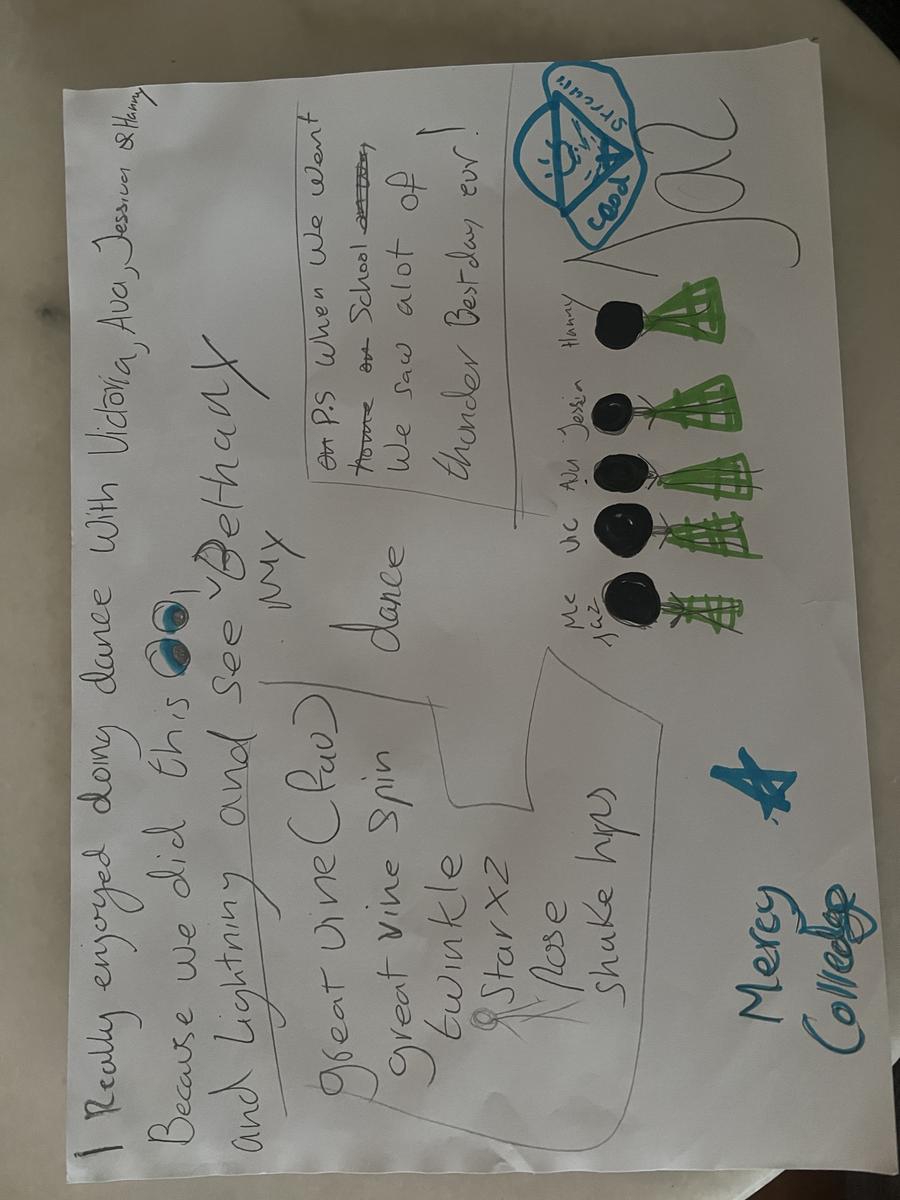 I Really enjoyed doing dance with Victoria, Ava, Jessica & Hanny
Because we did this
and Lightniny and see Bethany
My
dance
great vine (fav)
great vine spin
twinkle
Star x2
Pose
shake hips
P.S When we went
home School
We saw alot of
thunder Best day eur!
Me
Vic
Ava
Jessica
Hanny
Good
Mercy
Colledge